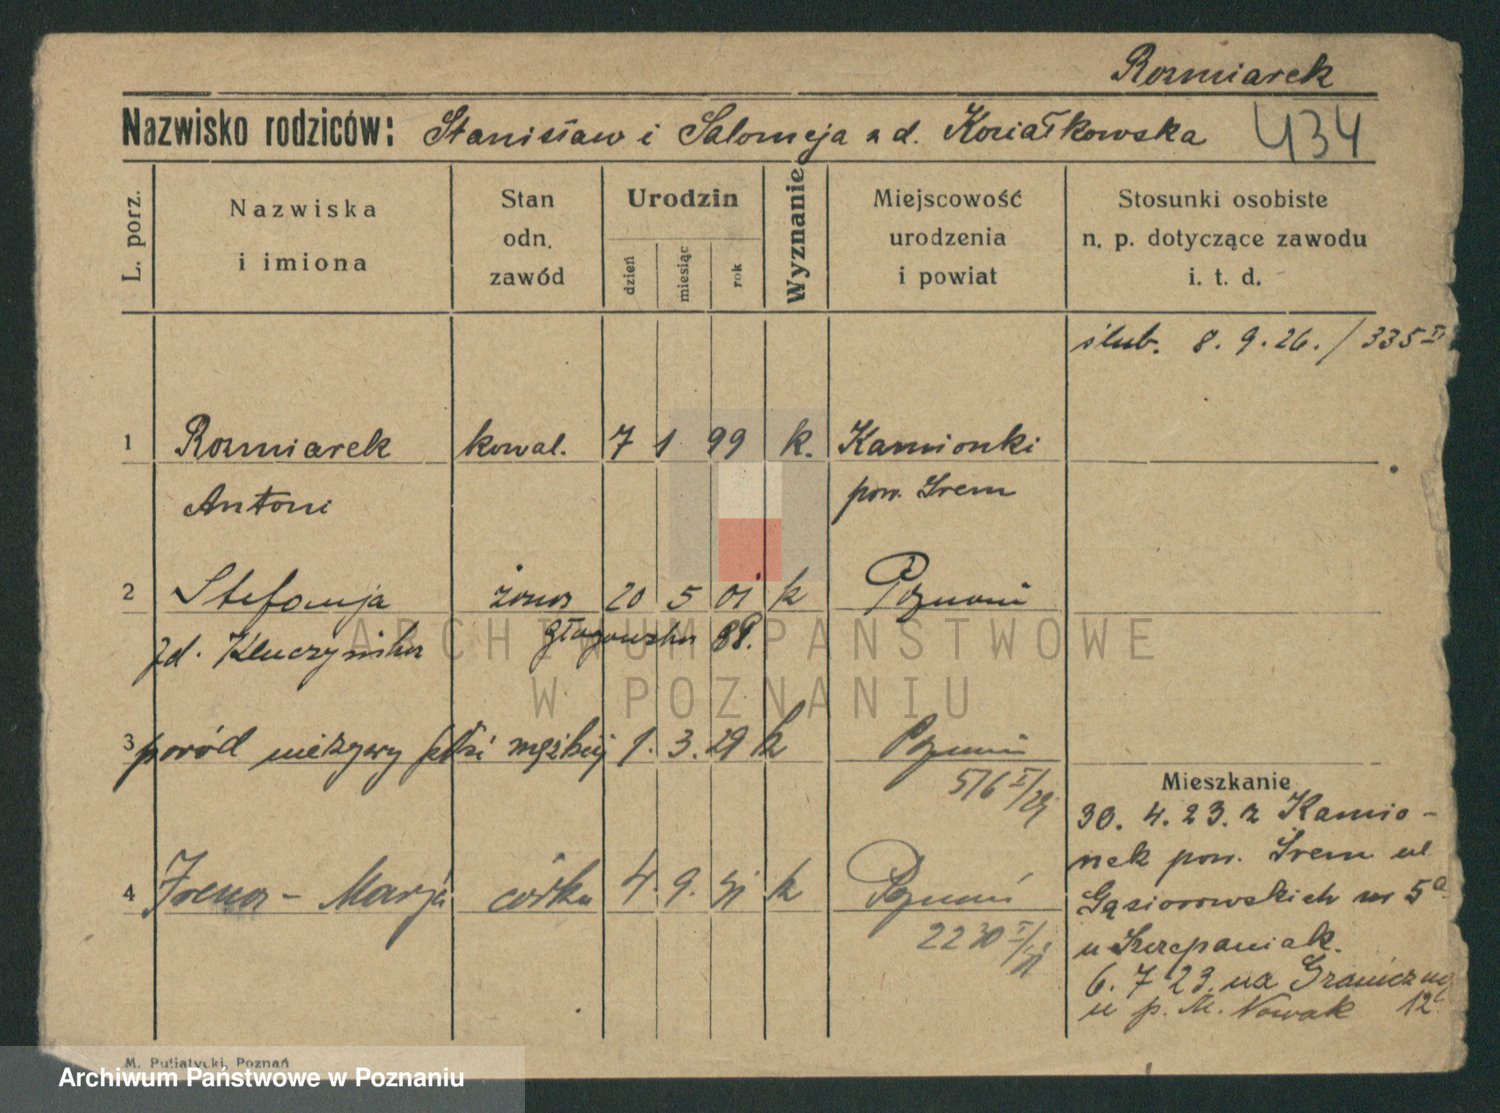 Rozmiarek
Nazwisko rodziców: Stanisław i Salomeja z d. Koziałkowska 434
L. porz.
Nazwiska
i imiona
Stan
odn.
zawód
Urodzin
dzień
miesiąc
rok
Wyznanie
Miejscowość
urodzenia
i powiat
Stosunki osobiste
n. p. dotyczące zawodu
i. t. d.
ślub. 8. 9. 26. / 335 II
1 Rozmiarek kowal. 7 1 99 k. Kamionki
Antoni pow. Śrem
2 Stefanja żona 20 5 01 k Poznań
zd. Kluczyńska Głogowska 88.
3 poród nieżywy płci męskiej 1. 3. 29 k Poznań
576 I/29
4 Irena - Marja córka 4. 9. 31 k Poznań
2230 I/31
Mieszkanie
30. 4. 23. z Kamio-
nek pow. Śrem ul.
Gąsiorowskich nr 5a
u Szczepaniak.
6. 7 23. na Graniczną
u p. M. Nowak 12
M. Putiatycki, Poznań
ARCHIWUM PAŃSTWOWE
W POZNANIU
Archiwum Państwowe w Poznaniu